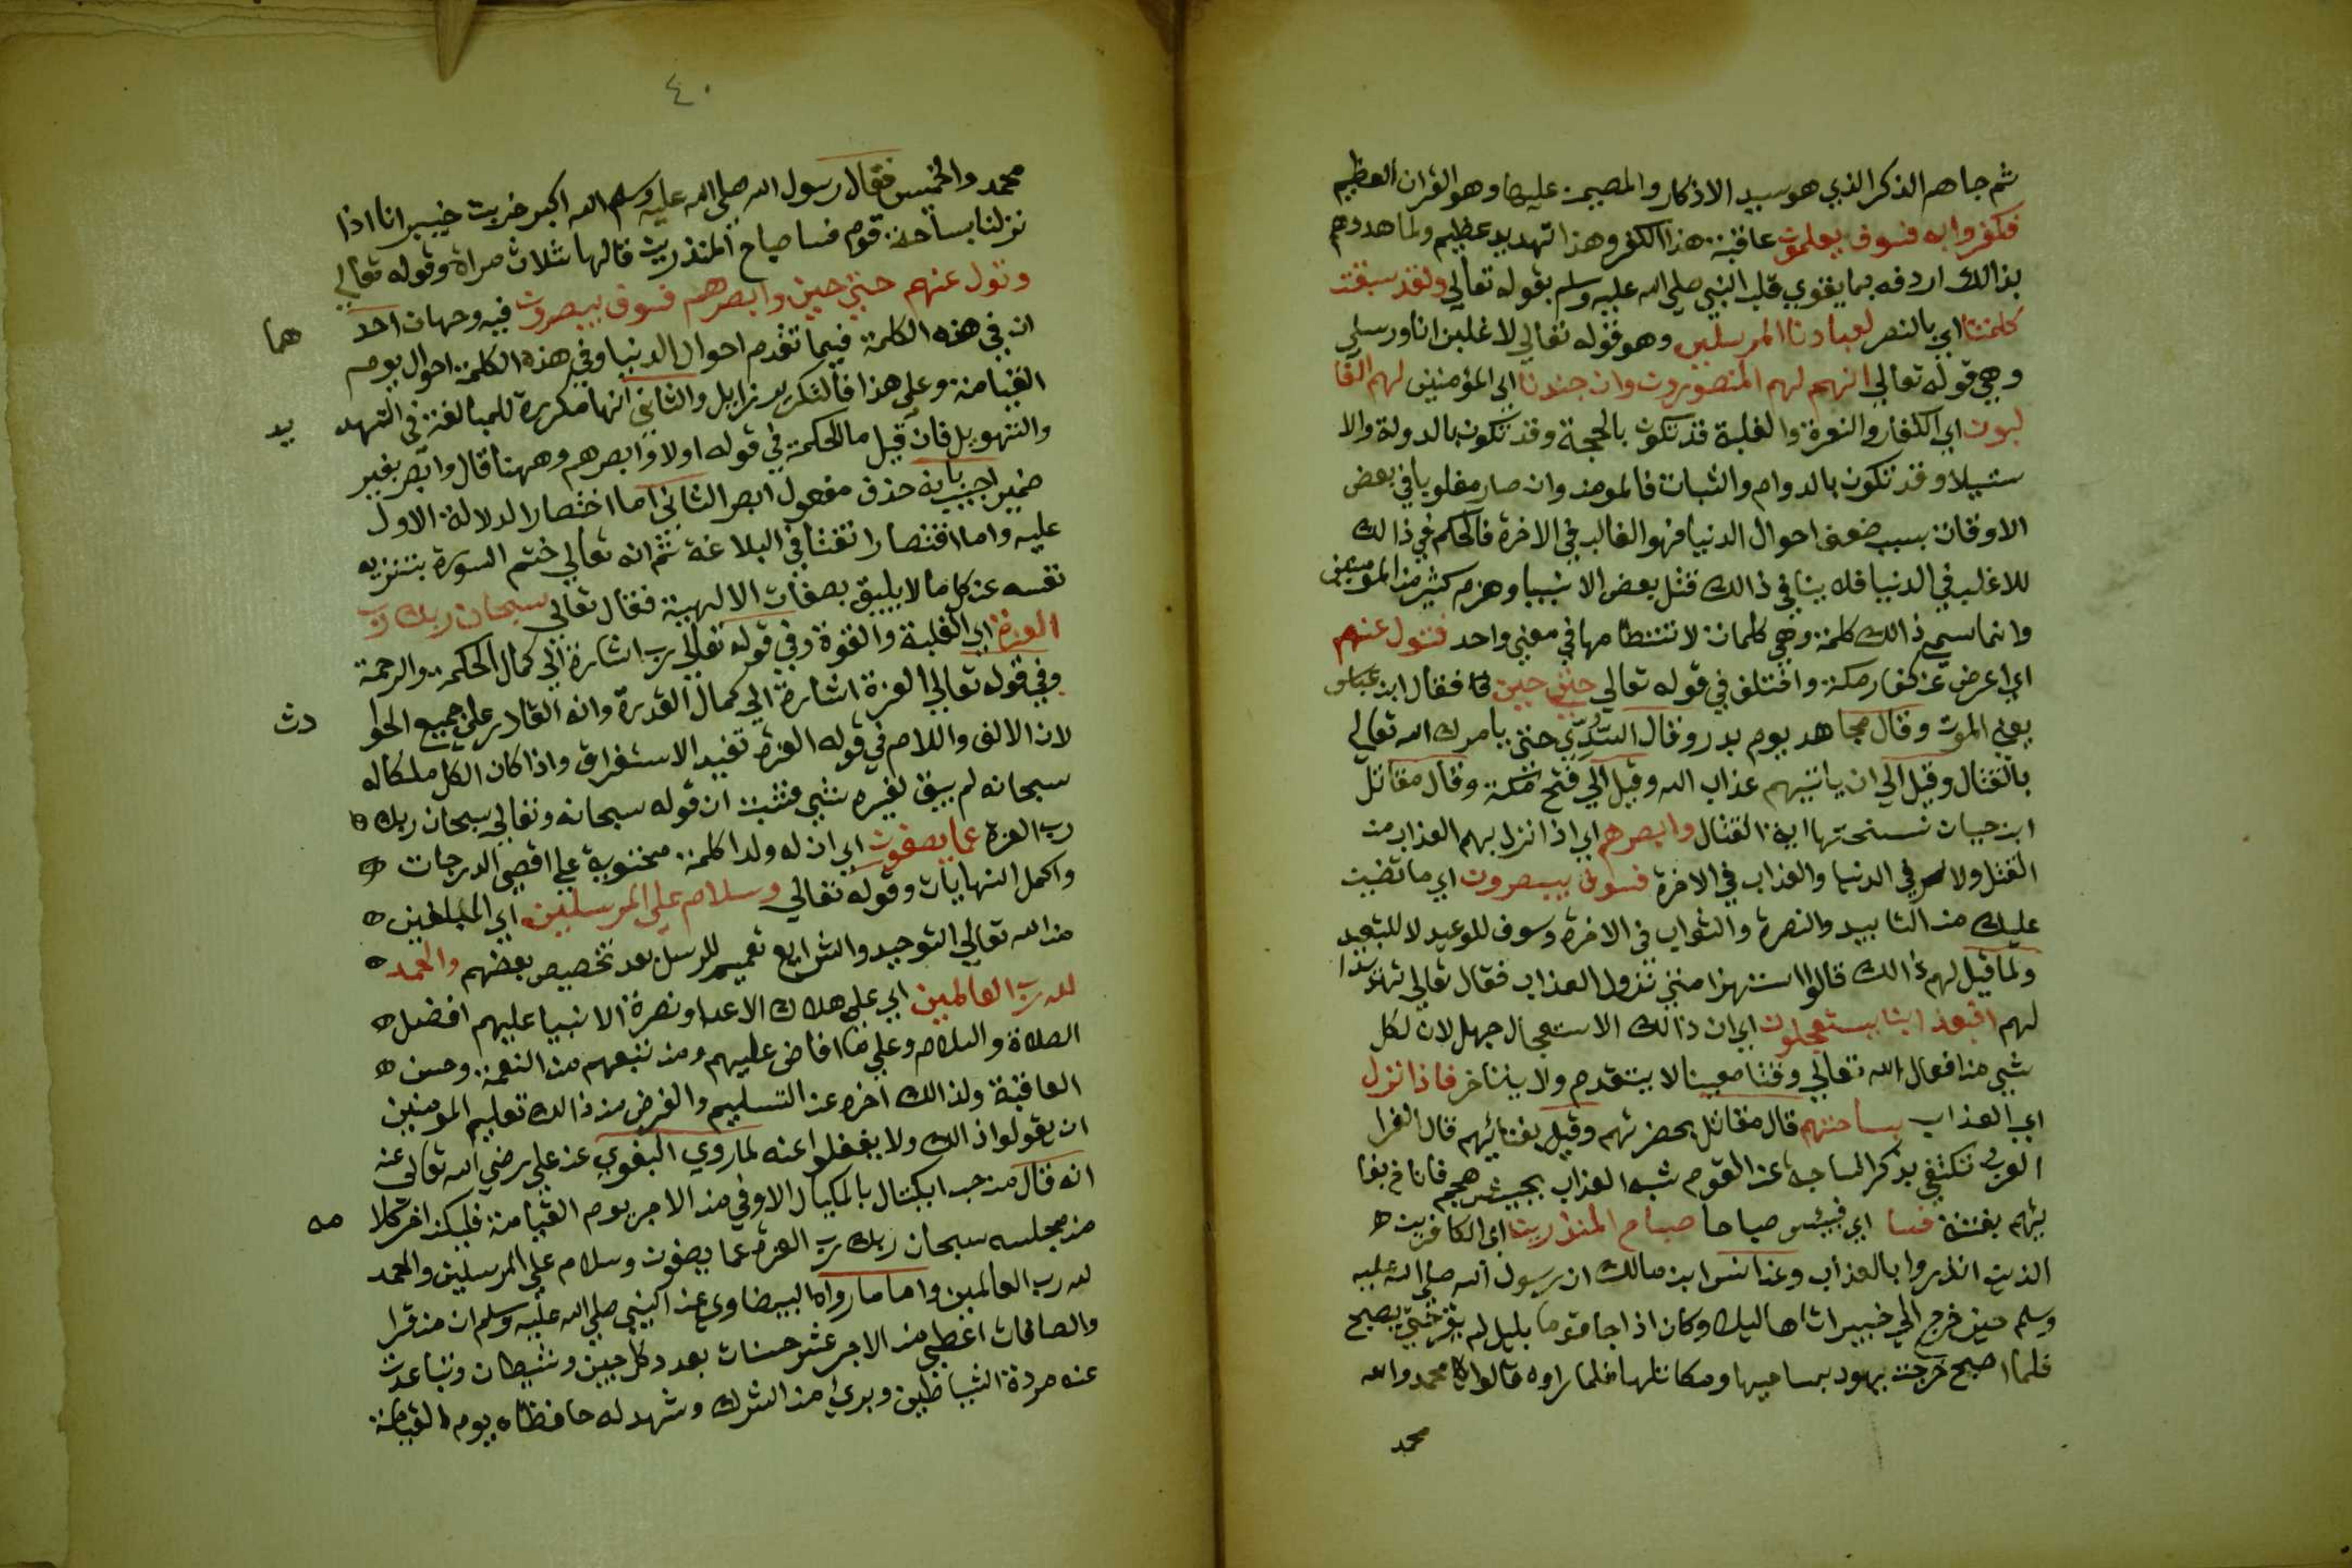 ثم جاهم الذكر الذي هو سيد الاذكار والمهيمن عليها وهو القران العظيم
فكفروا به فسوف يعلمون عاقبة هذا الكفر وهذا تهديد عظيم ولما هددهم
بذالك اردفه بما يقوي قلب النبي صلي الله عليه وسلم بقوله تعالي ولقد سبقت
كلمتنا اي بالنصر لعبادنا المرسلين وهو قوله تعالي لاغلبن انا ورسلي
وهي قوله تعالي انهم لهم المنصورون وان جندنا اي المؤمنين لهم الغا
لبون اي الكفار والنصرة والغلبة قد تكون بالحجة وقد تكون بالدولة والا
ستيلا وقد تكون بالدوام والثبات فالمومن وان صار مغلوبا في بعض
الاوقات بسبب ضعف احوال الدنيا فهو الغالب في الاخرة فالحكم في ذالك
للاغلب في الدنيا فلا ينافي ذالك قتل بعض الانبيا وهزم كثير من المومنين
وانما سمي ذالك كلمة وهي كلمات لانتظامها في معني واحد فتول عنهم
اي اعرض عن كفار مكة واختلف في قوله تعالي حتي حين فقال ابن عباس
يعني الموت وقال مجاهد يوم بدر وقال السُّدِّي حتي يامرك الله تعالي
بالقتال وقيل الي ان ياتيهم عذاب الله وقيل الي فتح مكة وقال مقاتل
ابن حيان نسختها اية القتال وابصرهم اي اذا نزل بهم العذاب من
القتل والاسر في الدنيا والعذاب في الاخرة فسوف يبصرون اي ما قضيت
عليك من التاييد والنصرة والثواب في الاخرة وسوف للوعيد لا للتبعيد
ولما قيل لهم ذالك قالوا استهزا متي نزول العذاب فقال تعالي تهديدا
لهم افبعذابنا يستعجلون اي ان ذالك الاستعجال جهل لان لكل
شي من افعال الله تعالي وقتا معينا لا يتقدم ولا يتاخر فاذا نزل
اي العذاب بساحتهم قال مقاتل بحضرتهم وقيل بفنائهم قال الفرا
العرب تكتفي بذكر الساحة عن القوم شبه العذاب بجيش هجم فاناخ بفنا
ئهم بغتة فسا اي فبئس صباحا صباح المنذرين اي الكافرين
الذين انذروا بالعذاب وعن انس ابن مالك ان رسول الله صلي الله عليه
وسلم حين خرج الي خيبر اتاها ليلا وكان اذا جا قوما بليل لم يغز حتي يصبح
فلما اصبح خرجت يهود بمساحيها ومكاتلها فلما راوه قالوا محمد والله
محمد
٤٠
محمد والخميس فقال رسول الله صلي الله عليه وسلم الله اكبر خربت خيبر انا اذا
نزلنا بساحة قوم فسا صباح المنذرين قالها ثلاث مراة وقوله تعالي
وتول عنهم حتي حين وابصرهم فسوف يبصرون فيه وجهان احد هما
ان في هذه الكلمة فيما تقدم احوال الدنيا وفي هذه الكلمة احوال يوم
القيامة وعلي هذا فالتكرير زايل والثاني انها مكررة للمبالغة في التهد يد
والتهويل فان قيل ما الحكمة في قوله اولا وابصرهم وههنا قال وابصر بغير
ضمير اجيب بانه حذف مفعول ابصر الثاني اما اختصارا لدلالة الاول
عليه واما اقتصارا تفننا في البلاغة ثم انه تعالي ختم السورة بتنزيه
نفسه عن كل ما لا يليق بصفات الالهية فقال تعالي سبحان ربك رب
العزة اي الغلبة والقوة وفي قوله تعالي رب اشارة الي كمال الحكمة والرحمة
وفي قوله تعالي العزة اشارة الي كمال القدرة وانه القادر علي جميع الحوا دث
لان الالف واللام في قوله العزة تفيد الاستغراق واذا كان الكل ملكا له
سبحانه لم يبق لغيره شي فثبت ان قوله سبحانه وتعالي سبحان ربك
رب العزة عما يصفون اي ان له ولدا كلمة محتوية علي اقصي الدرجات
واكمل النهايات وقوله تعالي وسلام علي المرسلين اي المبلغين
من الله تعالي التوحيد والشرايع تعميم للرسل بعد تخصيص بعضهم والحمد
لله رب العالمين اي علي هلاك الاعدا ونصرة الانبيا عليهم افضل
الصلاة والسلام وعلي ما افاض عليهم ومن تبعهم من النعمة وحسن
العاقبة ولذالك اخره عن التسليم والغرض من ذالك تعليم المومنين
ان يقولوا ذالك ولا يغفلوا عنه لما روي البغوي عن علي رضي الله تعالي عنه
انه قال من حب ان يكتال بالمكيال الاوفي من الاجر يوم القيامة فليكن اخر كلا مه
من مجلسه سبحان ربك رب العزة عما يصفون وسلام علي المرسلين والحمد
لله رب العالمين واما ما رواه البيضاوي عن النبي صلي الله عليه وسلم ان من قرا
والصافات اعطي من الاجر عشر حسنات بعدد كل جبن وشيطان وتباعدت
عنه مردة الشياطين وبري من الشرك وشهد له حافظاه يوم القيامة